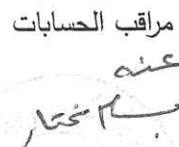 مراقب الحسابات
عنه
بسام مختار